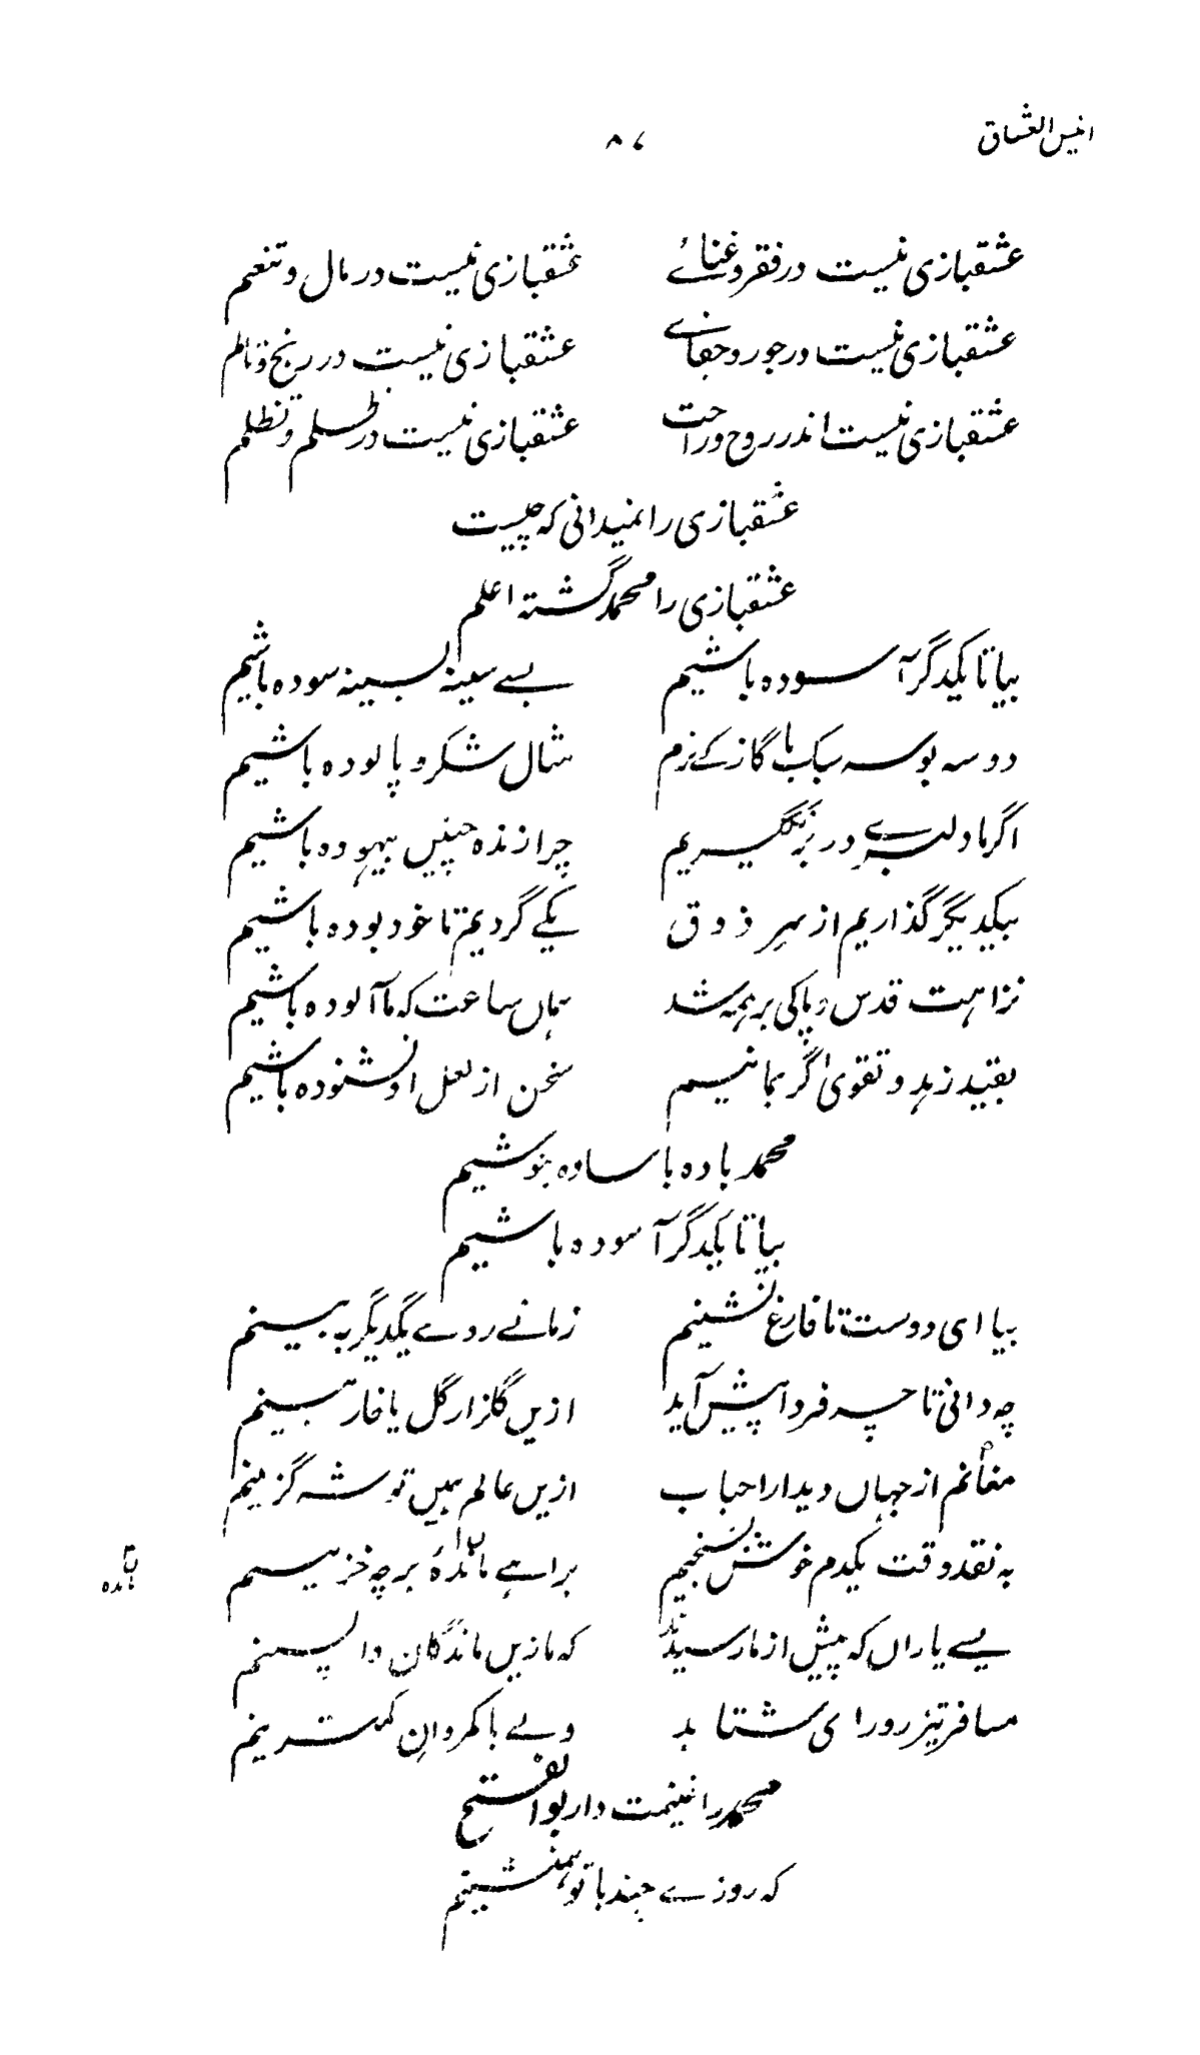 انیس العشاق
۸۷
عشقبازی نیست در فقر و غنائے عشقبازی نیست در مال و تنعم
عشقبازی نیست در جور و جفائے عشقبازی نیست در رنج و تالم
عشقبازی نیست اندر روح و راحت عشقبازی نیست در ظلم و تظلم
عشقبازی را نمیدانی که چیست
عشقبازی را محمد گشته اعلم
بیا تا یکدگر آسوده باشیم بسے سینه بسینه سوده باشیم
دو سه بوسه بیک با گاز کے نرم مثال شکر و پالوده باشیم
اگر ما دلبرے در بر نگیریم چرا زنده چنیں بیهوده باشیم
بیکدیگر گذاریم از سرِ ذوق یکے گردیم تا خود بوده باشیم
نزاهت قدس و پاکی بر همه شد هماں ساعت که ما آلوده باشیم
بقید زهد و تقویٰ گر بمانیم سخن از لعل او نشنوده باشیم
محمد باده با ساده بنوشیم
بیا تا یکدگر آسوده باشیم
بیا ای دوست تا فارغ نشینم زمانے روے یکدیگر به بینم
چه دانی تا چه فردا پیش آید ازیں گلزار گل یا خار بینم
مغانم از جهاں دیدار احباب ازیں عالم همیں توشه گزینم
به نقد وقت یکدم خوش بسنجیم براهے مانده بر چه خزینیم
بسے یاراں که پیش از ما رسیدند که ما زیں ماندگان وا پسینم
مسافر تیز رو را ی شتابد ولے با کمروانِ کمترینم
محمد را غنیمت دار بوالفتح
که روزے چند با تو همنشینم